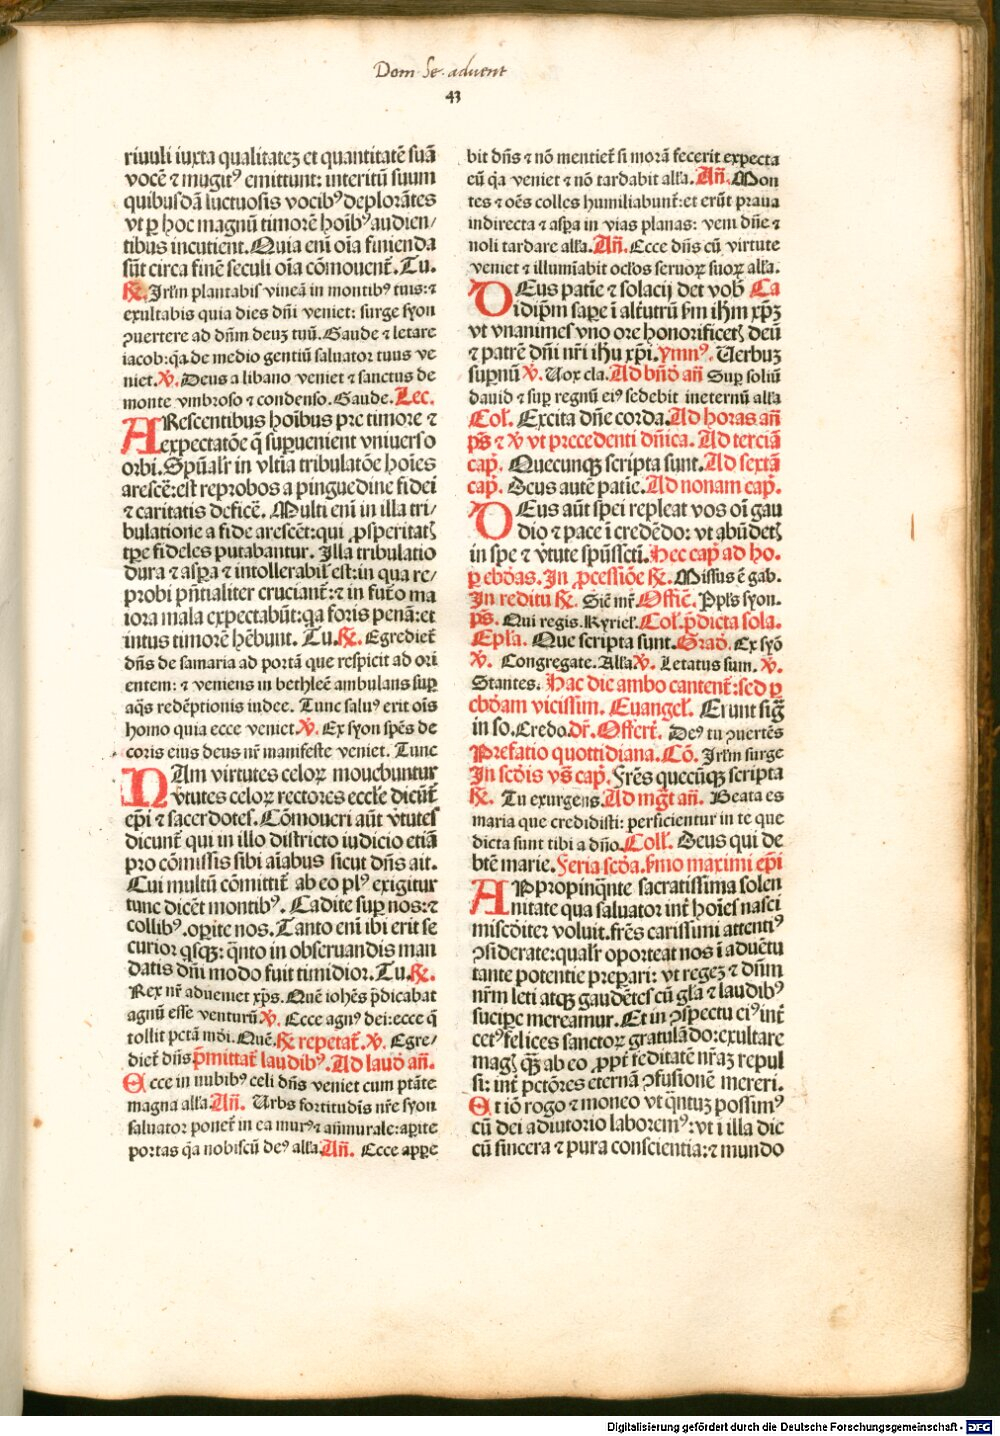 Dom. Se. advent
43
riuuli iuxta qualitateꝫ et quantitatē suā
vocē ⁊ mugitꝰ emittunt: interitū suum
quibusdā luctuosis vocibꝰ deplorātes
vt ꝑ hoc magnū timorē hoībꝰ audien/
tibus incutient. Quia eni oīa finienda
sūt circa finē seculi oīa cōmouent̄. Tu.
℟. Irlm̄ plantabis vineā in montibꝰ tuis: ⁊
exultabis quia dies dn̄i veniet: surge syon
ꝯuertere ad dn̄m deuꝫ tuū. Gaude ⁊ letare
iacob: q̄a de medio gentiū saluator tuus ve
niet. ℣. Deus a libano veniet ⁊ sanctus de
monte vmbroso ⁊ condenso. Gaude. Lec.
ARescentibus hoībus pre timore ⁊
expectatōe q̄ suꝑuenient vniuerso
orbi. Spūalr̄ in vltīa tribulatōe hoīes
arescē: est reprobos a pinguedine fidei
⁊ caritatis deficē. Multi eni in illa tri/
bulatione a fide arescēt: qui ꝓsperitatꝭ
tꝑe fideles putabantur. Illa tribulatio
dura ⁊ asꝑa ⁊ intollerabil̄ est: in qua re/
probi pn̄tialiter cruciant̄: ⁊ in futō ma
iora mala expectabūt: q̄a foris penā: et
intus timorē hēbunt. Tu. ℟. Egrediet̄
dn̄s de samaria ad portā que respicit ad ori
entem: ⁊ veniens in bethleē ambulans suꝑ
aq̄s redēptionis iudee. Tunc saluꝰ erit oīs
homo quia ecce veniet. ℣. Ex syon spēs de
coris eius deus nr̄ manifeste veniet. Tunc
NAm virtutes celoꝝ mouebuntur
v̄tutes celoꝝ rectores eccl̄e dicūt̄
ep̄i ⁊ sacerdotes. Cōmoueri aūt v̄tutes
dicunt̄ qui in illo districto iudicio etiā
pro cōmissis sibi aīabus sicut dn̄s ait.
Cui multū cōmittit̄ ab eo plꝰ exigitur
tunc dicēt montibꝰ. Cadite suꝑ nos: ⁊
collibꝰ. oꝑite nos. Tanto eni ibi erit se
curior qsꝗꝫ: q̄nto in obseruandis man
datis dn̄i modo fuit timidior. Tu. ℟.
Rex nr̄ adueniet xp̄s. Quē iohēs p̄dicabat
agnū esse venturū. ℣. Ecce agnꝰ dei: ecce q̄
tollit pctā mōi. Quē. ℟ repetat̄. ℣. Egre/
diet̄ dn̄s p̄mittat̄ laudibꝰ. Ad laudꝭ an̄.
Ecce in nubibꝰ celi dn̄s veniet cum ptāte
magna all̄a. An̄. Urbs fortitudīs nr̄e syon
saluator ponet̄ in ea murꝰ ⁊ an̄murale: aꝑite
portas q̄a nobiscū deꝰ all̄a. An̄. Ecce apꝑe
bit dn̄s ⁊ nō mentiet̄ si morā fecerit expecta
eū q̄a veniet ⁊ nō tardabit all̄a. An̄. Mon
tes ⁊ oēs colles humiliabunt̄: et erūt praua
indirecta ⁊ asꝑa in vias planas: veni dn̄e ⁊
noli tardare all̄a. An̄. Ecce dn̄s cū virtute
veniet ⁊ illumiabit oclos seruoꝝ suoꝝ all̄a.
DEus patiē ⁊ solacij det vob̄ Ca
idip̄m saꝑe ī alt̄utrū ẜm ihm̄ xp̄ꝫ
vt vnanimes vno ore honorificetꝭ deū
⁊ patrē dn̄i nr̄i ihū xp̄i. ymnꝰ. Uerbuꝫ
supnū ℣. Uox cla. Ad bn̄dꝭ an̄ Suꝑ soliū
dauid ⁊ suꝑ regnū eiꝰ sedebit ineternū all̄a
Col̄. Excita dn̄e corda. Ad horas an̄
p̄s ⁊ ℣ vt precedenti dn̄ica. Ad terciā
cap̄. Quecunqꝫ scripta sunt. Ad sextā
cap̄. Deus autē patiē. Ad nonam cap̄.
DEus aūt spei repleat vos oī gau
dio ⁊ pace ī credēdo: vt abūdetꝭ
in spe ⁊ v̄tute spūssctī. Hec cap̄ ad ho.
ꝑ ebdꝭas. In ꝓcessiōe ℟. Missus ē gab.
In reditu ℟. Siē mr̄. Offic̄. Ppl̄s syon.
p̄s. Qui regis. Kyriel̄. Col̄. p̄dicta sola.
Epl̄a. Que scripta sunt. Gradꝭ. Ex syō
℣. Congregate. All̄a ℣. Letatus sum. ℣.
Stantes. Hac die ambo cantent̄: sed ꝑ
ebdꝭam vicissim. Euangel̄. Erunt siḡ
in so. Credo. dr̄. Offert̄. Deꝰ tu ꝯuertēs
Prefatio quottidiana. Cō. Irlm̄ surge
In scdis vs̄ cap̄. Fr̄es quecūqꝫ scripta
℟. Tu exurgens. Ad mgt̄ an̄. Beata es
maria que credidisti: perficientur in te que
dicta sunt tibi a dn̄o. Coll̄. Deus qui de
btē marie. Feria scdꝭa. ẜmo maximi ep̄i
APpropinq̄nte sacratissima solen
nitate qua saluator int̄ hoīes nasci
misc̄diter voluit. fr̄es carissimi attentiꝰ
ꝯsiderate: qualr̄ oporteat nos ī aduētu
tante potentie preꝑari: vt regeꝫ ⁊ dn̄m
nr̄m leti atqꝫ gaudētes cū gl̄a ⁊ laudibꝰ
suciꝑe mereamur. Et in ꝯspectu eiꝰ int̄
cetꝰ felices sanctoꝝ gratulādo: exultare
magꝭ qꝫ̄ ab eo ꝓpt̄ feditatē nr̄aꝫ repul
si: int̄ pctōres eternā ꝯfusionē mereri.
Et iō rogo ⁊ moneo vt q̄ntuꝫ possimꝰ
cū dei adiutorio laboremꝰ: vt ī illa die
cū sincera ⁊ pura conscientia: ⁊ mundo
Digitalisierung gefördert durch die Deutsche Forschungsgemeinschaft - DFG